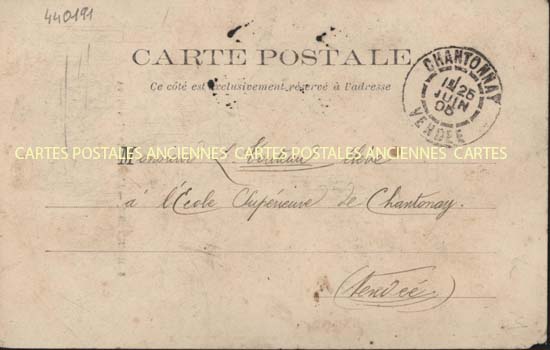 440191
CARTE POSTALE
Ce côté est exclusivement réservé à l'adresse
CHANTONNAY
25
JUIN
05
VENDÉE
CARTES POSTALES ANCIENNES CARTES POSTALES ANCIENNES CARTES
élève
à l'École Supérieure de Chantonay.
(Vendée)